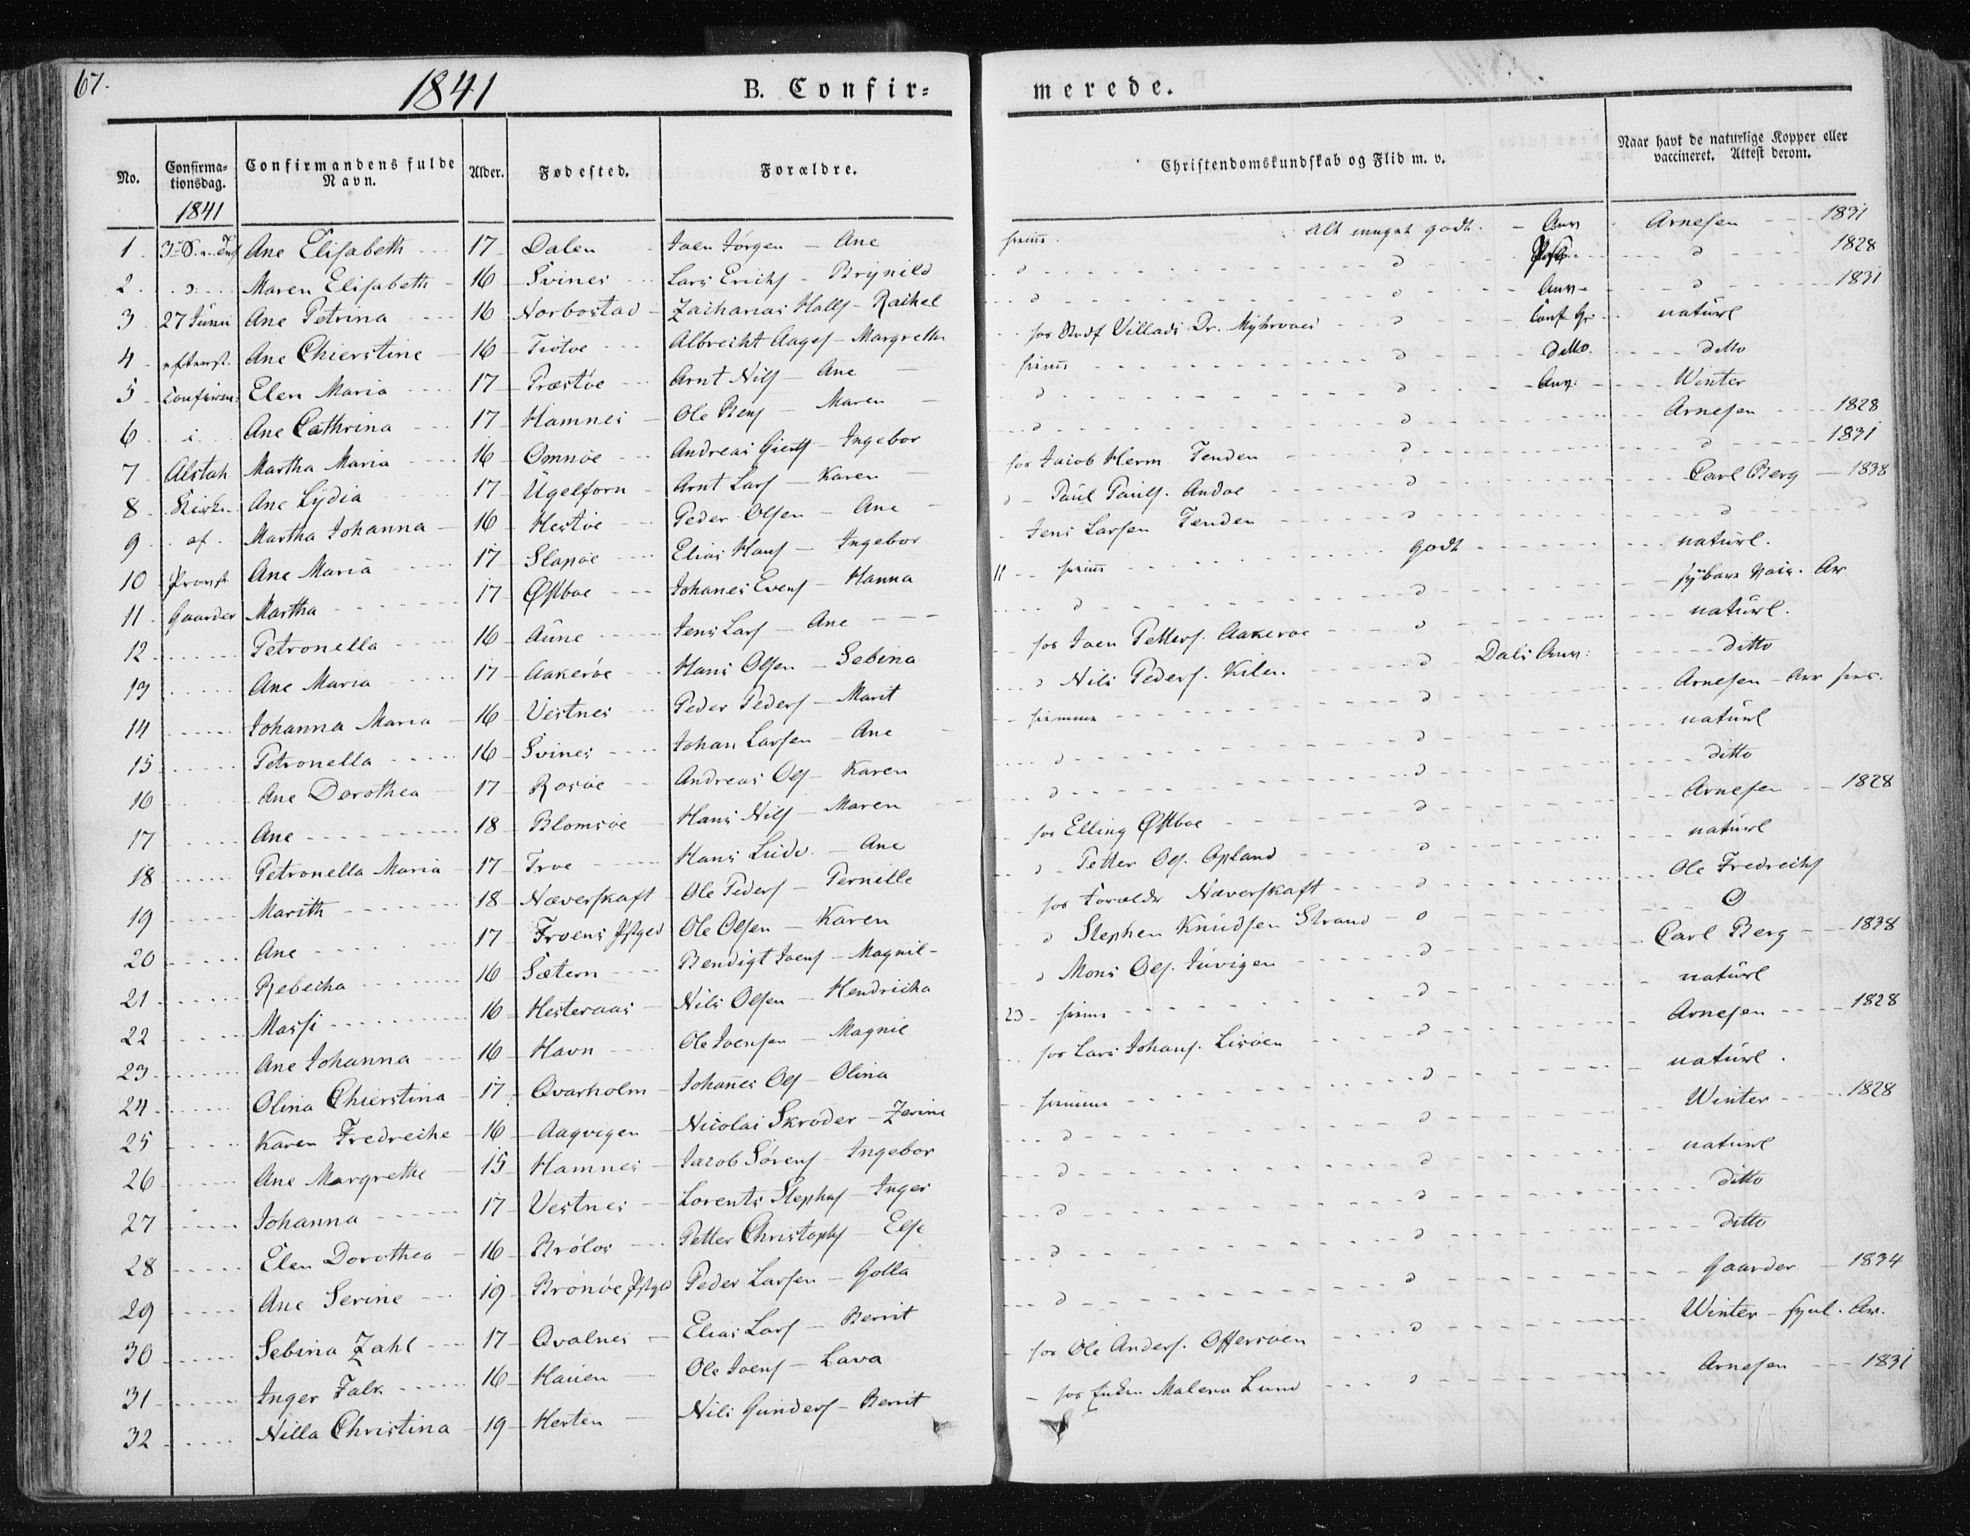 67.
1841
B. Confir=
merede.
No. Confirma-tionsdag. Confirmandens fulde Navn. Alder. Fødested. Forældre. Christendomskundskab og Flid m. v. Naar havt de naturlige Kopper eller vaccineret. Attest derom.
1841
1 Ane Elisabeth 17 Dalen Joen Jørgen - Ane alt meget godt. Arnesen 1831
2 Maren Elisabeth 16 Svines Lars Erichs - Brynild 1828
3 27 Juni Ane Petrina 16 Norbostad Zacharias Halls - Rachel 1831
4 Ane Chierstine 16 Albrecht Aages - Margrethe for naturl
5 Elen Maria 17 Præstøe Arnt Nils - Ane ditto. ditto
6 i Ane Cathrina 17 Hamnes Ole Bens - Maren Winter
7 Alstah Martha Maria 16 Omnøe Andreas - Ingebor Arnesen 1828
8 Ane Lydia 17 Ugelforn Arnt Lars - Karen for Jacob Herm Tenden 1831
9 af Martha Johanna 16 Hestøe Peder Olsen - Ane Paul Pauls. Andøe Carl Berg 1838
10 Provst Ane Maria 17 Slapøe Elias Hans - Ingebor Jens Larsen Tenden
11 Gaarder Martha 17 Østbøe Johanes Evens - Hanna 11 godt naturl.
12 Petronella 16 Aune Jens Lars - Ane
13 Ane Maria 17 Aakerøe Hans Olsen - Sebina for Joen Petters. Aakerøe naturl.
14 Johanna Maria 16 Vestnes Peder Peders - Marit Nils Peders. Kilen. ditto
15 Petronella 16 Svines Johan Larsen - Ane Arnesen
16 Ane Dorothea 17 Rosøe Andreas Ols - Karen naturl
17 Ane 18 Blomsøe Hans Nils - Maren ditto
18 Petronella Maria 17 Troe Hans - Ane for Elling Østbøe Arnesen 1828
19 Marith 18 Næverskaft Ole Peders - Pernille Petter Ols. Opland naturl
20 Ane 17 Ole Olsen - Karen for Forældr Næverskaft Ole Fredrichs
21 Rebecha 16 Sætern Bendigt Joens - Magnil Stephen Knudsen Strand
22 Massi 16 Hesteraas Nils Olsen - Hendricha Mons Ols. Juvigen Carl Berg 1838
23 Ane Johanna 16 Havn Ole Joensen - Magnil 23 naturl
24 Olina Chierstina 17 Qvarholm Johanes Ols - Olina for Lars Johans. Lisøen Arnesen 1828
25 Karen Fredriche 16 Aagvigen Nicolai Skroder - Zerine naturl.
26 Ane Margrethe 15 Hamnes Jacob Sørens - Ingebor Winter 1828
27 Johanna 17 Vestnes Lorents Stephs - Inger naturl
28 Elen Dorothea 16 Petter Christophs - Else ditto
29 Ane Serine 19 Brønøe Peder Larsen - Golla ditto
30 Sebina Zahl 17 Qvalnes Elias Lars - Berrit Gaarder 1834
31 Inger Falk 16 Hauen Ole Joens - Lava for Ole Anders. Offersøen Winter
32 Nilla Christina 19 Herten Nils Gunders - Berrit for Enken Malena Lund Arnesen 1831